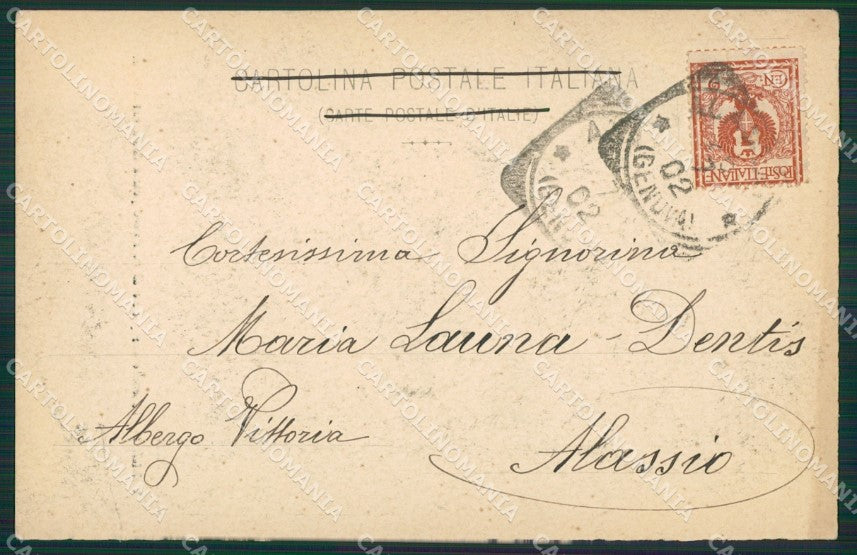 CARTOLINA POSTALE ITALIANA
(CARTE POSTALE D'ITALIE)
CEN
POSTE·ITALIANE
02
(GENOVA)
02
Cortesissima Signorina
Maria Launa-Dentis
Albergo Vittoria
Alassio
CARTOLINOMANIA